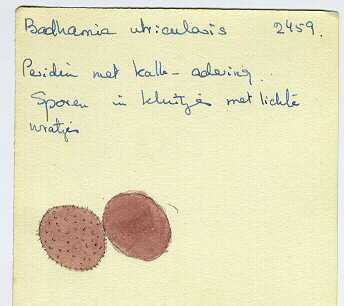 Badhamia utricularis 2459.
Peridiën met kalk-adering.
Sporen in kluitjes met lichte
wratjes